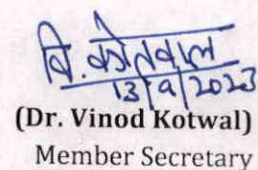 वि. कोतवाल
13/9/2023
(Dr. Vinod Kotwal)
Member Secretary